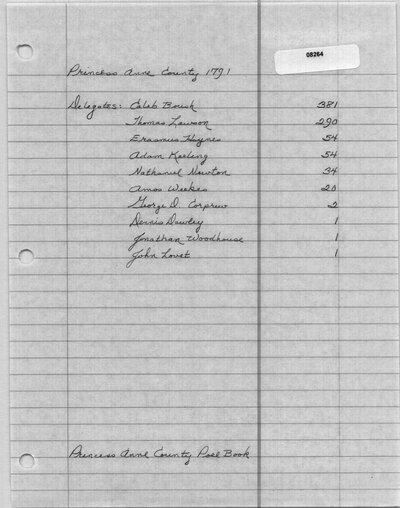 08264
Princess Anne County 1791
Delegates: Caleb Boush 381
Thomas Lawson 290
Erasmus Haynes 54
Adam Keeling 54
Nathaniel Newton 34
Amos Weekes 20
George D. Corprew 2
Dennis Dawley 1
Jonathan Woodhouse 1
John Lovet 1
Princess Anne County Poll Book